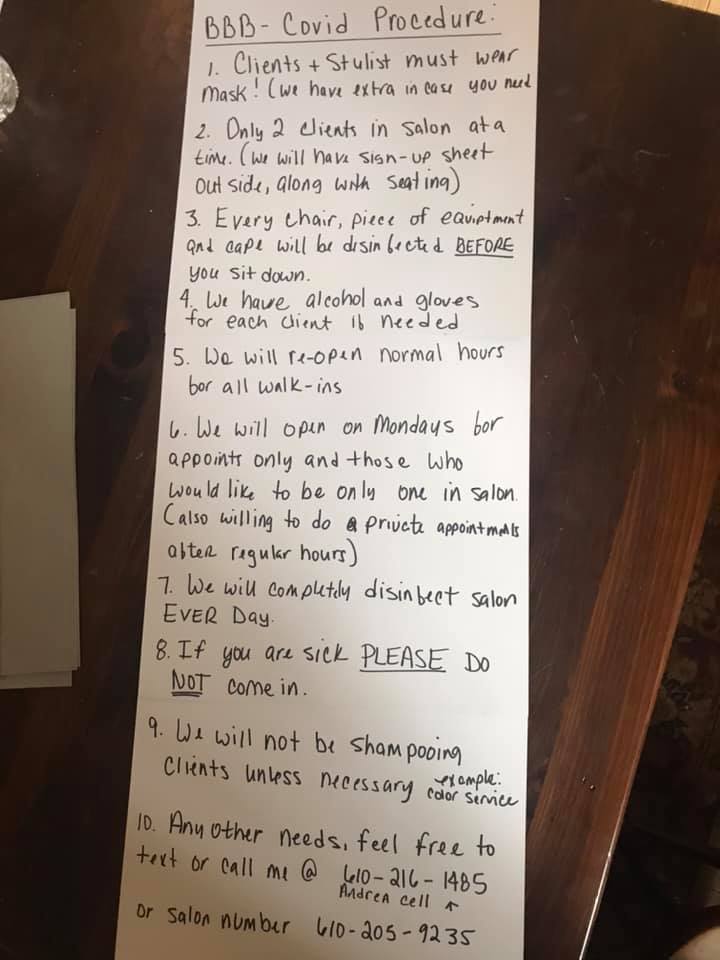 BBB- Covid Procedure:
1. Clients + Stulist must wear
mask! (we have extra in case you need
2. Only 2 clients in salon at a
time. (we will have sign-up sheet
outside, along with seating)
3. Every chair, piece of equiptment
and cape will be disinfected BEFORE
you sit down.
4. We have alcohol and gloves
for each client if needed
5. We will re-open normal hours
for all walk-ins
6. We will open on Mondays for
appoints only and those who
would like to be only one in salon.
(also willing to do a private appointments
after regular hours)
7. We will completly disinfect salon
EVER Day.
8. If you are sick PLEASE DO
NOT come in.
9. We will not be shampooing
clients unless necessary example:
color service
10. Any other needs, feel free to
text or call me @ 610-216-1485
Andrea cell ↑
or salon number 610-205-9235